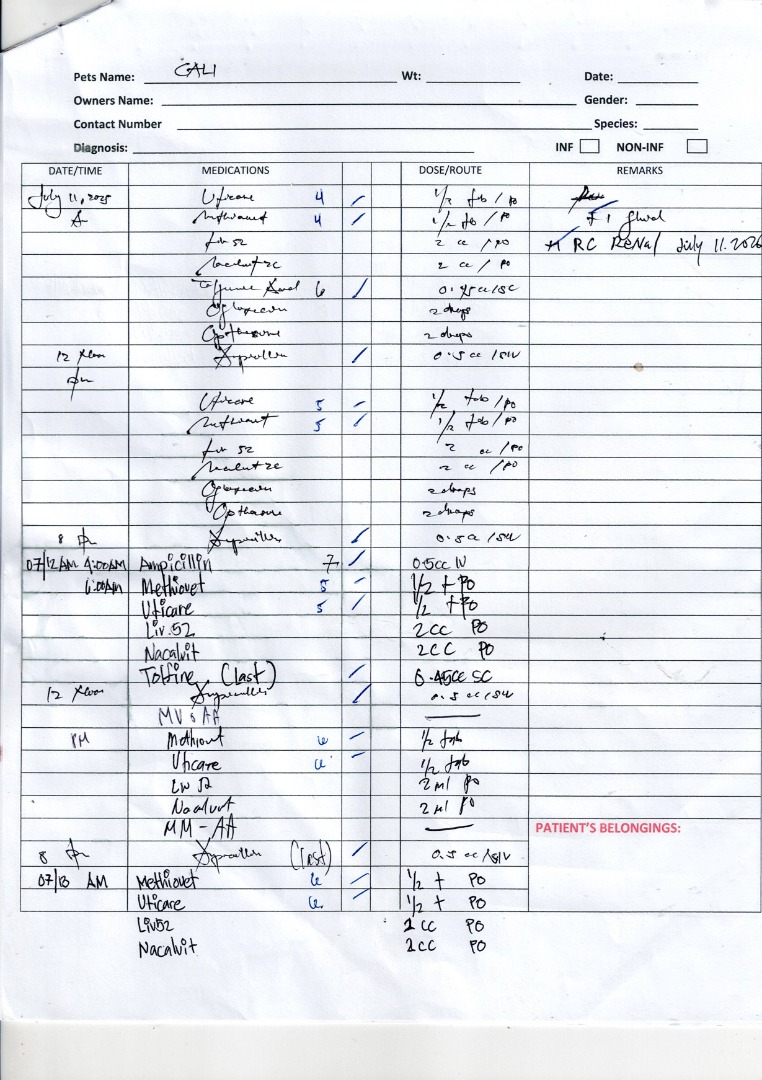 Pets Name: CALI Wt: Date:
Owners Name: Gender:
Contact Number Species:
Diagnosis: INF NON-INF
DATE/TIME MEDICATIONS DOSE/ROUTE REMARKS
July 11, 2025 Uticare 4 1/2 tab / PO
A Methiovet 4 1/2 tab / PO 1
Liv 52 2 cc / PO RC Renal July 11. 2025
Nacalvit 2 cc / PO
6 0.45cc/SC
2 drops
2 drops
12 0.5 cc / SIV
pm
Uticare 5 1/2 tab / PO
Methiovet 5 1/2 tab / PO
Liv 52 2 cc / PO
Nacalvit 2 cc / PO
2 drops
2 drops
8 pm 0.5 cc / SIV
07/12 AM 4:00AM Ampicillin 7 0.5cc IV
6:00AM Methiovet 5 1/2 t PO
Uticare 5 1/2 t PO
Liv.52 2CC PO
Nacalvit 2CC PO
Tolfine (last) 0.45cc SC
12 0.5 cc / SIV
MV & AA
PM Methiovet 6 1/2 tab
Uticare 6 1/2 tab
Liv 52 2 ml PO
Nacalvit 2 ml PO
MM - AA PATIENT'S BELONGINGS:
8 pm (last) 0.5 cc /SIV
07/13 AM Methiovet 6 1/2 t PO
Uticare 6 1/2 t PO
Liv52 2 CC PO
Nacalvit 2CC PO